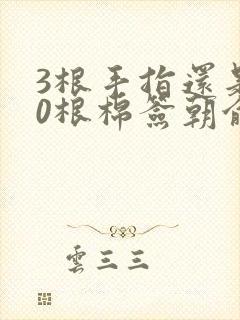 3根手指還
0根棉簽朝
雲三三